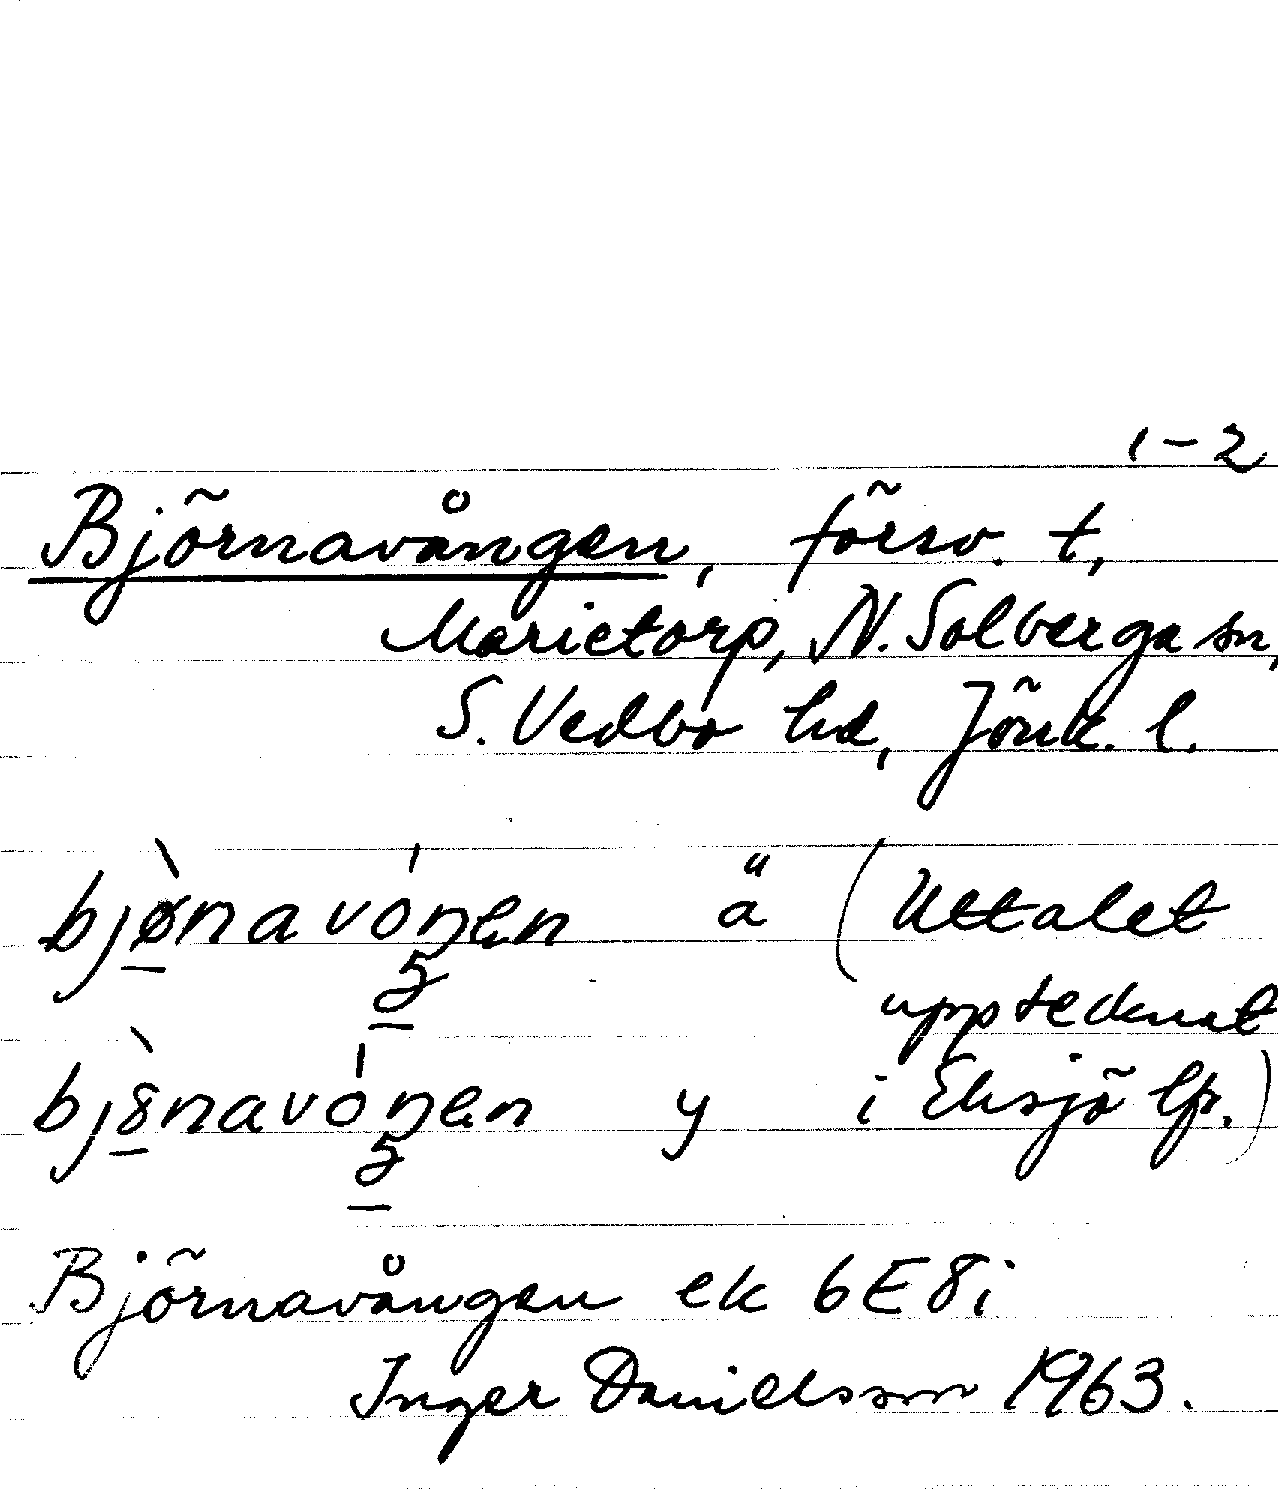 1-2
Björnavången, försv. t,
Marietorp, N. Solberga sn,
S. Vedbo hd, Jönk. l.
bjø̀navóŋen ä (Uttalet
upptecknat
bj8̀navóŋen y i Eksjö lfs.)
Björnavången ek 6E8i
Inger Danielsson 1963.